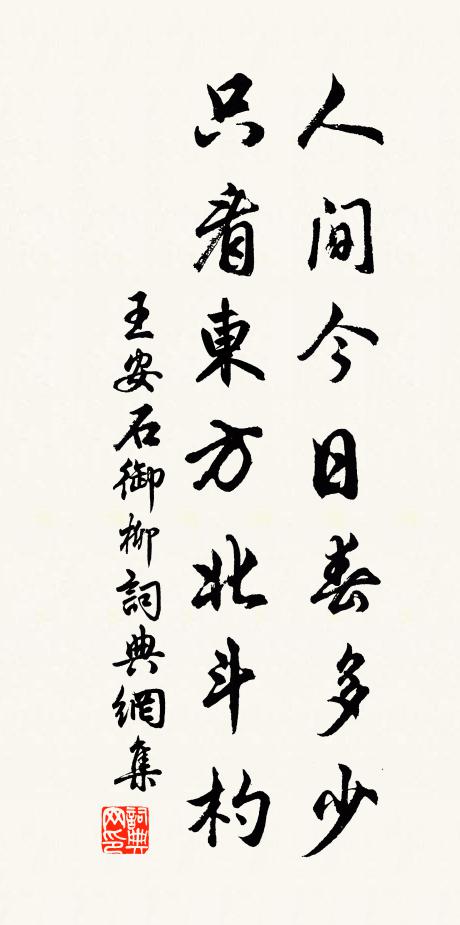 人間今日春多少
只看東方北斗杓
王安石御柳詞典網集
詞典网印